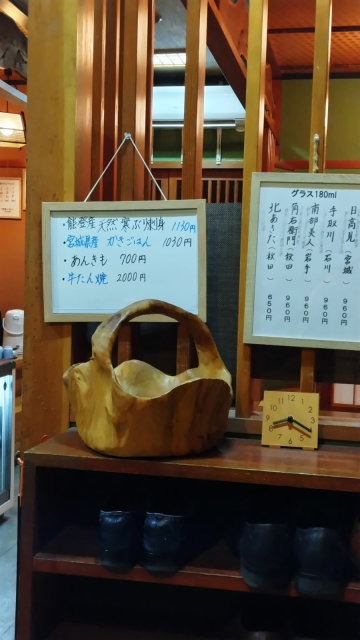 ・能登産天然寒ぶり刺身 1130円
・宮城県産 かきごはん 1030円
・あんきも 700円
・牛たん焼 2000円
グラス180ml
日高見（宮城） 960円
手取川（石川） 960円
南部美人（岩手） 960円
角右衛門（秋田） 960円
北あきた（秋田） 650円
12
1
2
3
4
5
6
7
8
9
10
11